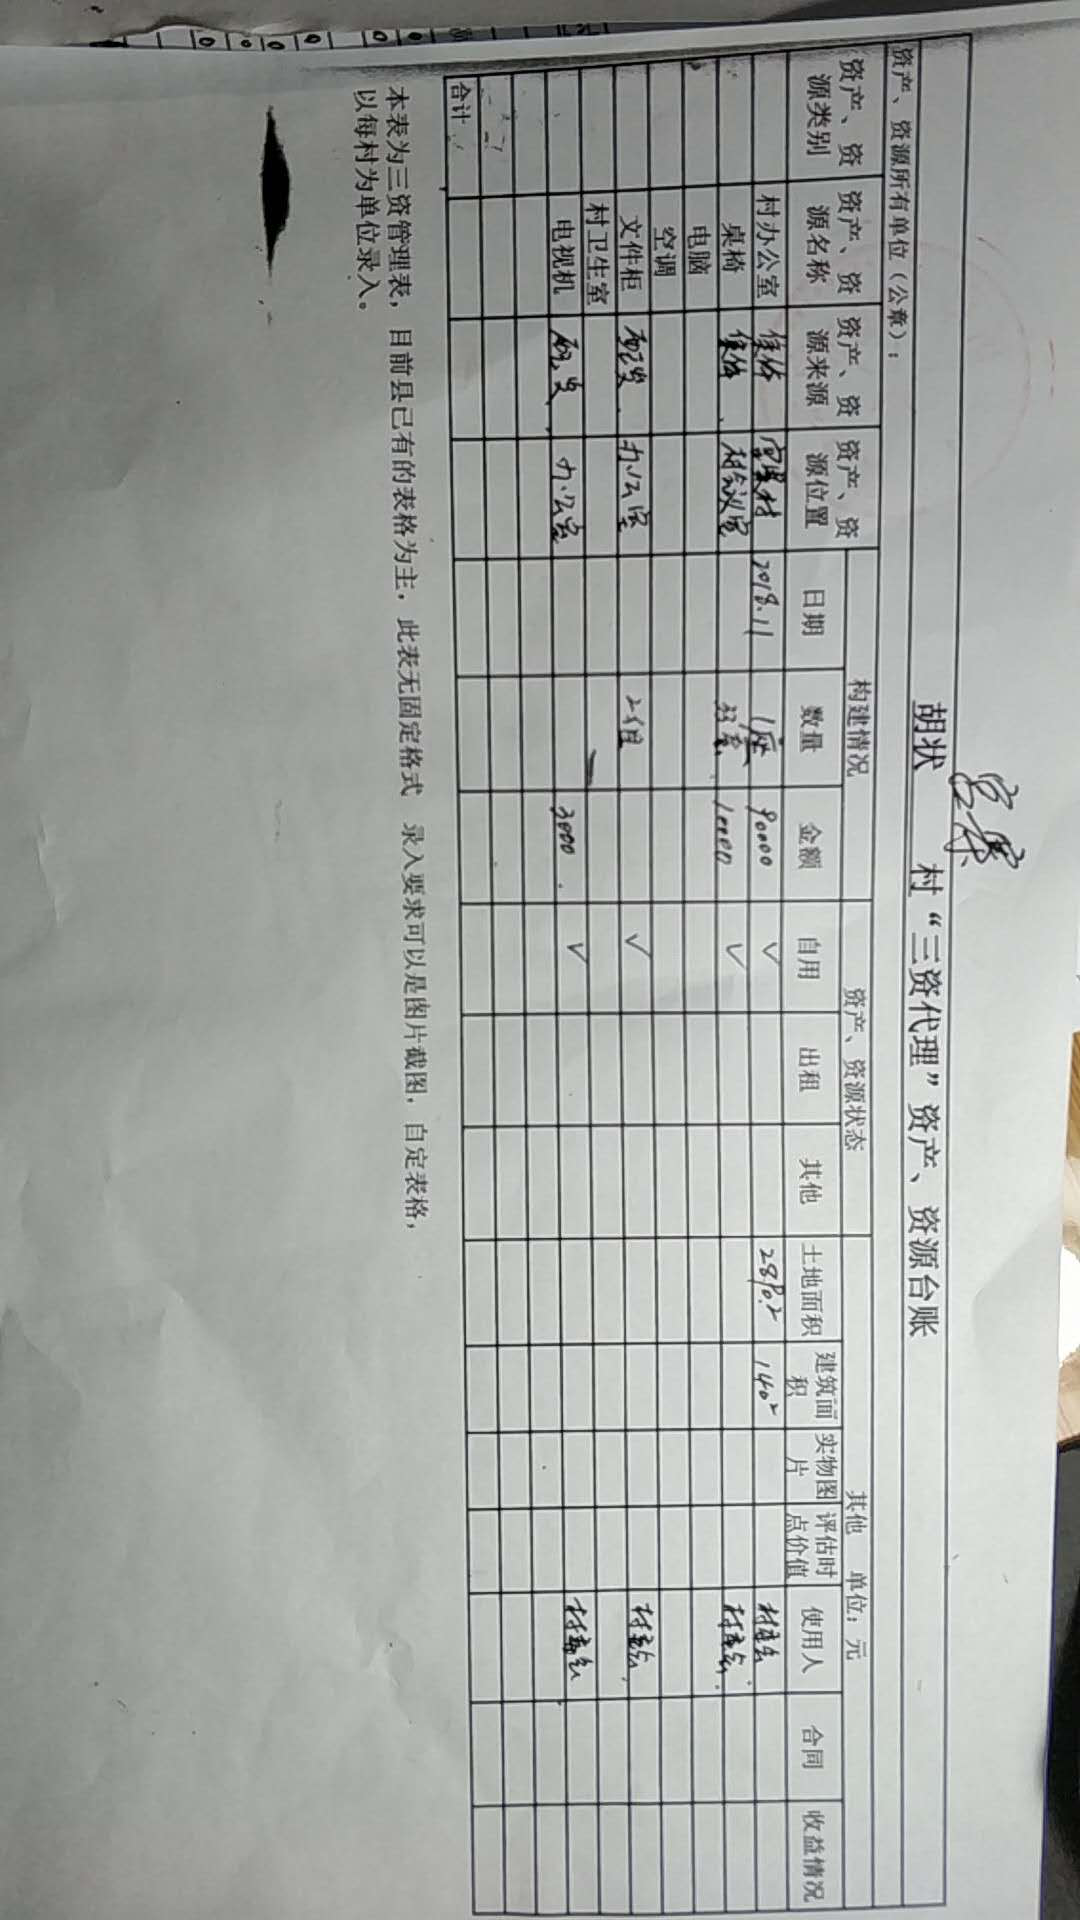 胡状 村“三资代理”资产、资源台账
资产、资源所有单位（公章）： 单位：元
资产、资源类别 资产、资源名称 资产、资源来源 资产、资源位置 构建情况 资产、资源状态 其他
日期 数量 金额 自用 出租 其他 土地面积 建筑面积 实物图片 评估时点价值 使用人 合同 收益情况
村办公室 集体 2018.11 1座 90000 √ 280.2 140² 村委会
桌椅 集体 村会议室 10000 √ 村委会
电脑
空调
文件柜 配发 办公室 2组 √ 村委会
村卫生室
电视机 配发 办公室 3000 √ 村委会
合计
本表为三资管理表，目前县已有的表格为主，此表无固定格式 录入要求可以是图片截图，自定表格，
以每村为单位录入。